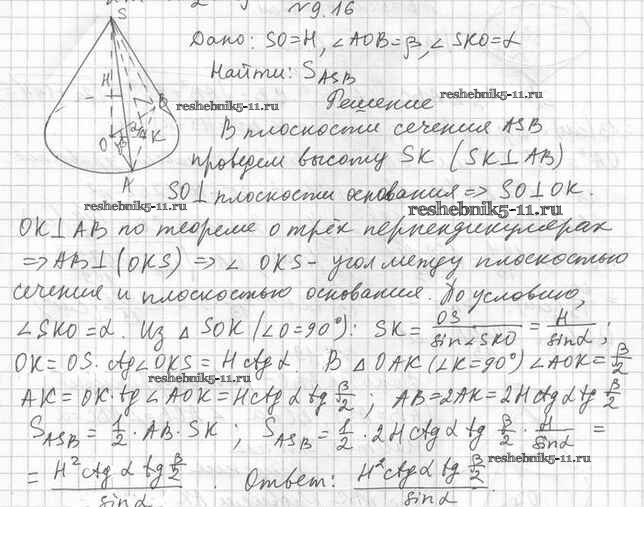 №9.16
S
Дано: SO=H, ∠AOB=β, ∠SKO=α
H
Найти: S_ASB
reshebnik5-11.ru
reshebnik5-11.ru
Решение
В плоскости сечения ASB
O
K
проведем высоту SK (SK⊥AB)
A
SO⊥плоскости основания ⇒ SO⊥OK.
reshebnik5-11.ru
reshebnik5-11.ru
OK⊥AB по теореме о трёх перпендикулярах
⇒ AB⊥(OKS) ⇒ ∠ OKS – угол между плоскостью
сечения и плоскостью основания. По условию,
∠SKO=α. Из △ SOK (∠O=90°): SK = OS/sin∠SKO = H/sinα ;
OK = OS·ctg∠OKS = H ctg α. В △ OAK (∠K=90°) ∠AOK = β/2
reshebnik5-11.ru
AK = OK·tg ∠AOK = H ctg α tg β/2 ; AB = 2AK = 2H ctg α tg β/2
S_ASB = 1/2 · AB · SK ; S_ASB = 1/2 · 2H ctg α tg β/2 · H/sinα =
reshebnik5-11.ru
= H² ctg α tg β/2 / sin α . Ответ: H² ctg α tg β/2 / sin α .